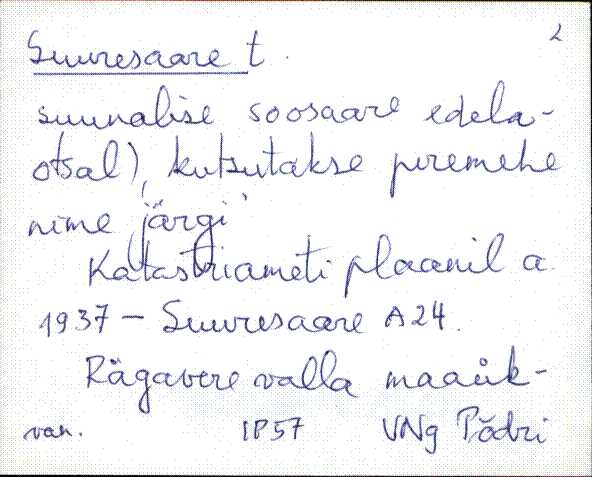 2
Suuresaare t.
suunalise soosaare edela-
otsal), kutsutakse peremehe
nime järgi
Katastriameti plaanil a.
1937 - Suuresaare A24.
Rägavere valla maaük-
van. IP57 VNg Põdri